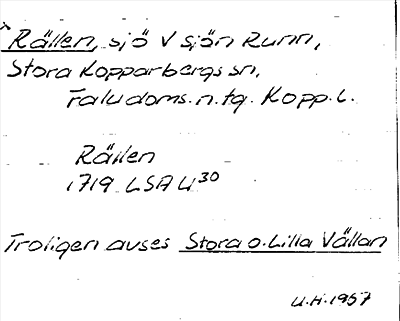 x Rällen, sjö V sjön Runn,
Stora Kopparbergs sn,
Faludoms. n. tg. Kopp. l.
Rällen
1719 LSA U30
Troligen avses Stora o. Lilla Vällan
U.H. 1957